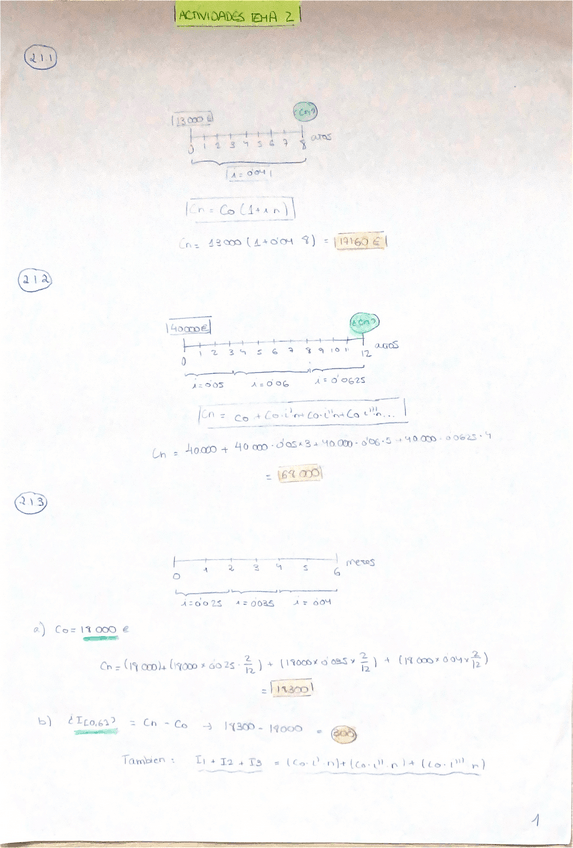 ACTIVIDADES TEMA 2
2.1.1
13000 € ¿Cn?
0 1 2 3 4 5 6 7 8 años
i = 0'04
Cn = Co (1+i n)
Cn = 13000 (1+0'04 8) = 17160 €
2.1.2
40000 € ¿Cn?
0 1 2 3 4 5 6 7 8 9 10 11 12 años
i=0'05 i=0'06 i=0'0625
Cn = Co + Co·i'n + Co·i''n + Co·i'''n...
Cn = 40.000 + 40.000·0'05·3 + 40.000·0'06·5 + 40.000·0'0625·4
= 68.000
2.1.3
0 1 2 3 4 5 6 meses
i=0'025 i=0'035 i=0'04
a) Co = 18.000 €
Cn = (18000) + (18000 × 0'025 · 2/12) + (18000 × 0'035 × 2/12) + (18000 × 0'04 × 2/12)
= 18300
b) ¿I[0,6]? = Cn - Co → 18300 - 18000 = 300
Tambien : I1 + I2 + I3 = (Co·i'·n) + (Co·i''·n) + (Co·i'''·n)
1